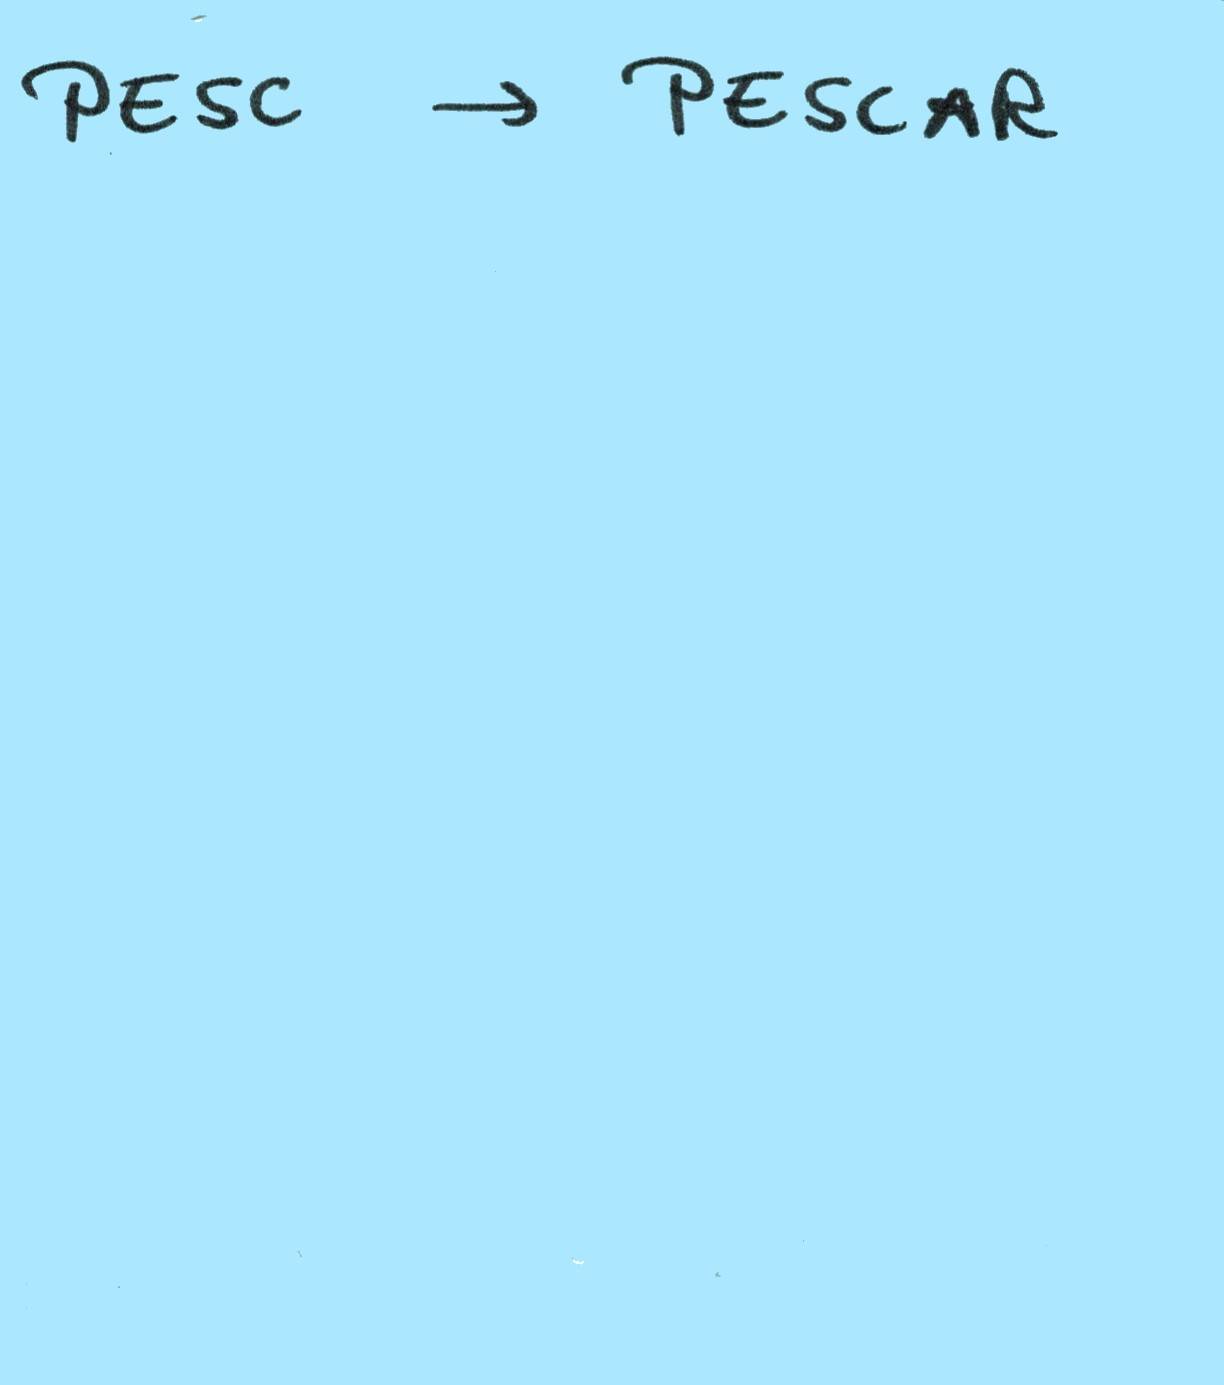 PESC → PESCAR